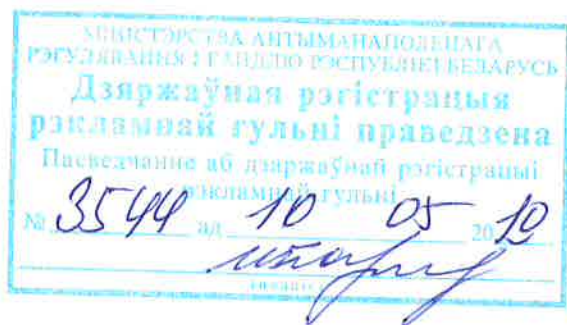 МІНІСТЭРСТВА АНТЫМАНАПОЛЬНАГА
РЭГУЛЯВАННЯ І ГАНДЛЮ РЭСПУБЛІКІ БЕЛАРУСЬ
Дзяржаўная рэгістрацыя
рэкламнай гульні праведзена
Пасведчанне аб дзяржаўнай рэгістрацыі
рэкламнай гульні
№ 3544 ад 10 05 2019